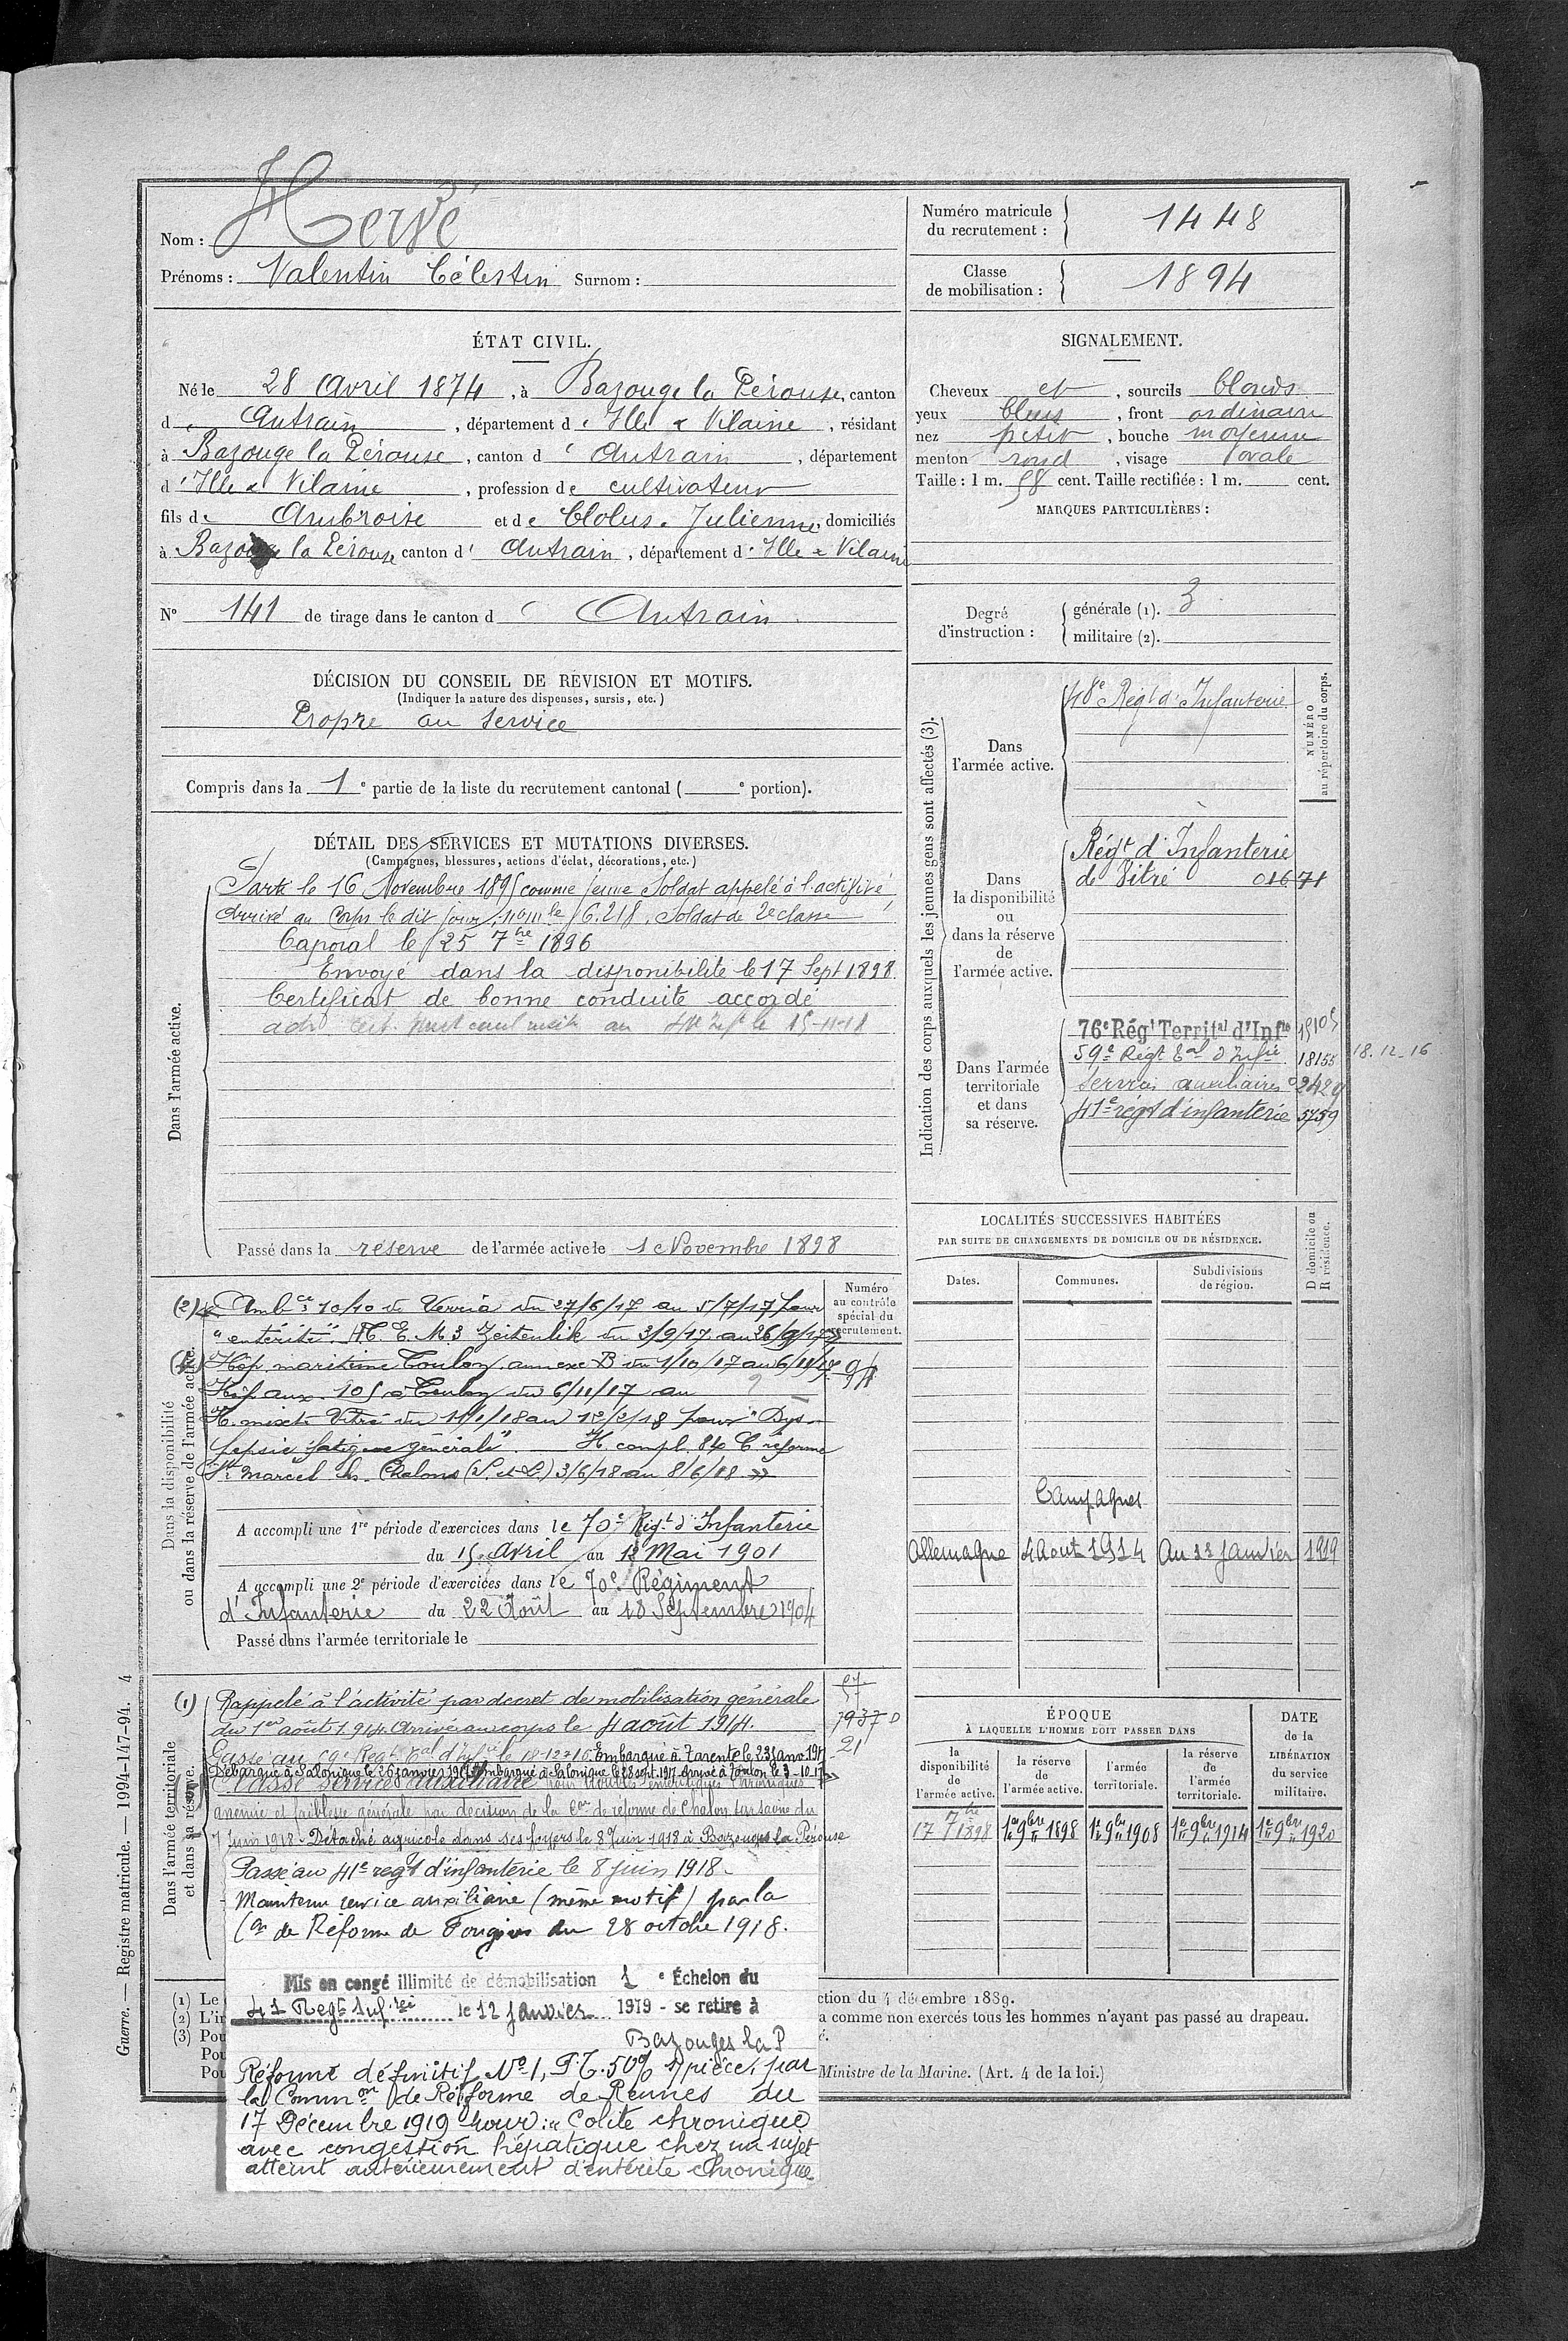 Nom : Hervé
Prénoms : Valentin Célestin Surnom :
Numéro matricule
du recrutement : 1448
Classe
de mobilisation : 1894
ÉTAT CIVIL.
Né le 28 Avril 1874, à Bazouge la Pérouse, canton
d' Antrain, département d' Ille & Vilaine, résidant
à Bazouge la Pérouse, canton d' Antrain, département
d' Ille & Vilaine, profession de cultivateur
fils de Ambroise et de Julienne, domiciliés
à Bazouge la Pérouse canton d' Antrain, département d' Ille & Vilaine
N° 141 de tirage dans le canton d' Antrain
SIGNALEMENT.
Cheveux et, sourcils blonds
yeux bleus, front ordinaire
nez petit, bouche moyenne
menton rond, visage ovale
Taille : 1 m. 58 cent. Taille rectifiée : 1 m. cent.
MARQUES PARTICULIÈRES :
Degré
d'instruction :
générale (1). 3
militaire (2).
DÉCISION DU CONSEIL DE RÉVISION ET MOTIFS.
(Indiquer la nature des dispenses, sursis, etc.)
Propre au service
Compris dans la 1e partie de la liste du recrutement cantonal ( e portion).
DÉTAIL DES SERVICES ET MUTATIONS DIVERSES.
(Campagnes, blessures, actions d'éclat, décorations, etc.)
Dans l'armée active.
Parti le 16 Novembre 1895 comme jeune Soldat appelé à l'activité
Arrivé au Corps le dit jour, nom le 6.218. Soldat de 2e classe
Caporal le 25 7bre 1896
Envoyé dans la disponibilité le 17 Sept 1898
Certificat de bonne conduite accordé
le 15-11-18
Passé dans la réserve de l'armée active le 1 Novembre 1898
Indication des corps auxquels les jeunes gens sont affectés (3).
NUMÉRO
au répertoire du corps.
Dans
l'armée active.
48e Régt d'Infanterie
Dans
la disponibilité
ou
dans la réserve
de
l'armée active.
Régt d'Infanterie
de Vitré 01671
Dans l'armée
territoriale
et dans
sa réserve.
76e Régt Territal d'Infie 15105
59e Régt Eal d'Infie 18155 18.12.16
Service auxiliaire 2429
41e régt d'infanterie 5759
Dans la disponibilité
ou dans la réserve de l'armée active.
Numéro
au contrôle
spécial du
recrutement.
(2) Ambce 10/10 de Verria du 27/6/17 au 5/7/17 pour
"entérite". H.C.E.M 3 Zeitenlik du 3/9/17 au 26/9/17
Hôp. maritime Toulon annexe B du 1/10/17 au 6/11/17
Hôp aux. 105 à Toulon du 6/11/17 au ?
H. mixte Vitré du 11/1/18 au 12/2/18 pour "Dys-
pepsie fatigue générale". H. compl. 84 C. réforme
St Marcel ls. Chalons (S. et L.) 3/6/18 au 8/6/18 »
A accompli une 1re période d'exercices dans le 70e Régt d'Infanterie
du 15 Avril au 12 Mai 1901
A accompli une 2e période d'exercices dans le 70e Régiment
d'Infanterie du 22 Août au 18 Septembre 1904
Passé dans l'armée territoriale le
LOCALITÉS SUCCESSIVES HABITÉES
PAR SUITE DE CHANGEMENTS DE DOMICILE OU DE RÉSIDENCE.
Dates.
Communes.
Subdivisions
de région.
D domicile ou
R résidence.
Campagnes
Allemagne 4 Aout 1914 Au 11 janvier 1919
Dans l'armée territoriale
et dans sa réserve.
(1) Rappelé à l'activité par decret de mobilisation générale
du 1er août 1914. Arrivé au corps le 4 août 1914.
Passé au 59e Régt Eal d'Infie le 18-12-16. Embarqué à Tarente le 23 janv. 1917
Débarqué à Salonique le 26 janvier 1917. Embarqué à Salonique le 28 sept. 1917. Arrivé à Toulon le 3-10-17
Classé service auxiliaire pour troubles entéritiques chroniques
anémie et faiblesse générale par decision de la Con de réforme de Chalon sur saone du
7 Juin 1918. Détaché agricole dans ses foyers le 8 Juin 1918 à Bazouges la Pérouse
Passé au 41e regt d'infanterie le 8 juin 1918.
Maintenu service auxiliaire (même motif) par la
Con de Réforme de Fougères du 28 octobre 1918.
Mis en congé illimité de démobilisation 1e Échelon du
41 Regt Infrie le 12 janvier 1919 - se retire à
Bazouges la P
Réformé définitif No 1, P.T. 50% 1 pièce, par
la Common de Réforme de Rennes du
17 Décembre 1919 pour : "Colite chronique
avec congestion hépatique chez un sujet
atteint antérieurement d'entérite chronique
57
1937 D
21
ÉPOQUE
À LAQUELLE L'HOMME DOIT PASSER DANS
la
disponibilité
de
l'armée active.
la réserve
de
l'armée active.
l'armée
territoriale.
la réserve
de
l'armée
territoriale.
DATE
de la
LIBÉRATION
du service
militaire.
17 7bre 1898 1er 9bre 1898 1er 9bre 1908 1er 9bre 1914 1er 9bre 1920
(1) Le
(2) L'in
(3) Pou
Pou
Pou
ction du 4 décembre 1889.
a comme non exercés tous les hommes n'ayant pas passé au drapeau.
é.
Ministre de la Marine. (Art. 4 de la loi.)
Guerre. — Registre matricule. — 1994-147-94. 4